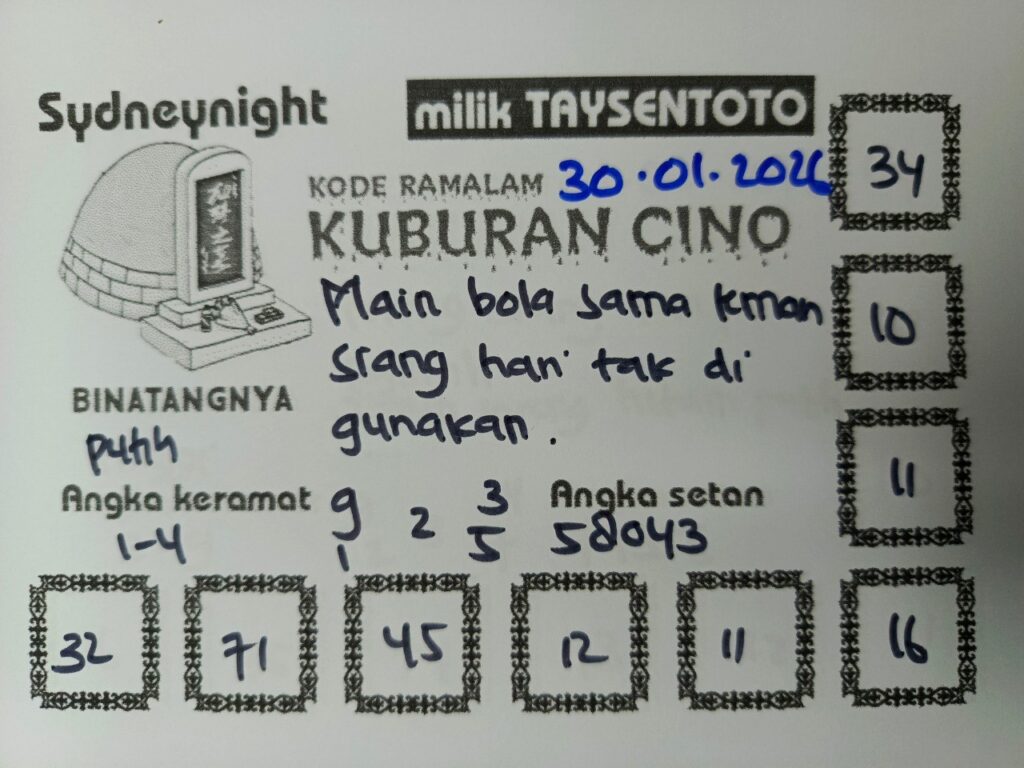 Sydneynight
milik TAYSENTOTO
KODE RAMALAM 30.01.2026
KUBURAN CINO
Main bola sama kman
srang hari tak di
gunakan.
BINATANGNYA
putih
Angka keramat
1-4
9 2 3
1 5
Angka setan
58043
34
10
11
32 71 45 12 11 16